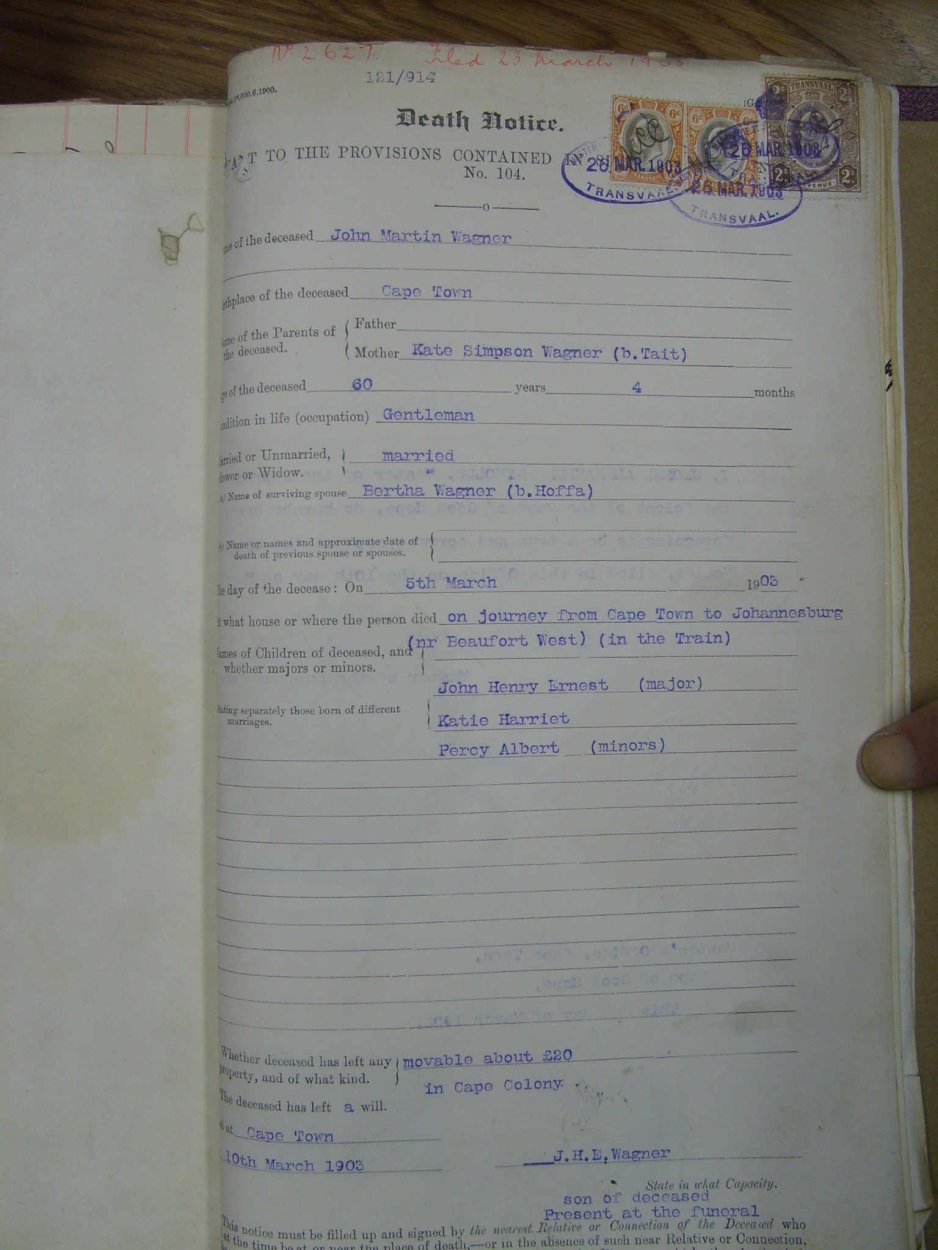 No 2627. Filed 23 March 1903
121/914
Death Notice.
TO THE PROVISIONS CONTAINED IN
No. 104.
26 MAR 1903
TRANSVAAL
26 MAR 1903
TRANSVAAL.
26 MAR 1903
TRANSVAAL
of the deceased John Martin Wagner
place of the deceased Cape Town
of the Parents of the deceased.
Father
Mother Kate Simpson Wagner (b.Tait)
of the deceased 60 years 4 months
in life (occupation) Gentleman
or Unmarried, married
or Widow.
Name of surviving spouse Bertha Wagner (b.Hoffa)
Name or names and approximate date of
death of previous spouse or spouses.
day of the decease: On 5th March 1903
what house or where the person died on journey from Cape Town to Johannesburg
(nr Beaufort West) (in the Train)
of Children of deceased, and
whether majors or minors.
John Henry Ernest (major)
separately those born of different
marriages.
Katie Harriet
Percy Albert (minors)
Whether deceased has left any movable about £20
property, and of what kind.
in Cape Colony
The deceased has left a will.
at Cape Town
10th March 1903 J.H.E.Wagner
State in what Capacity.
son of deceased
Present at the funeral
This notice must be filled up and signed by the nearest Relative or Connection of the Deceased who
at the time be at or near the place of death,—or in the absence of such near Relative or Connection,